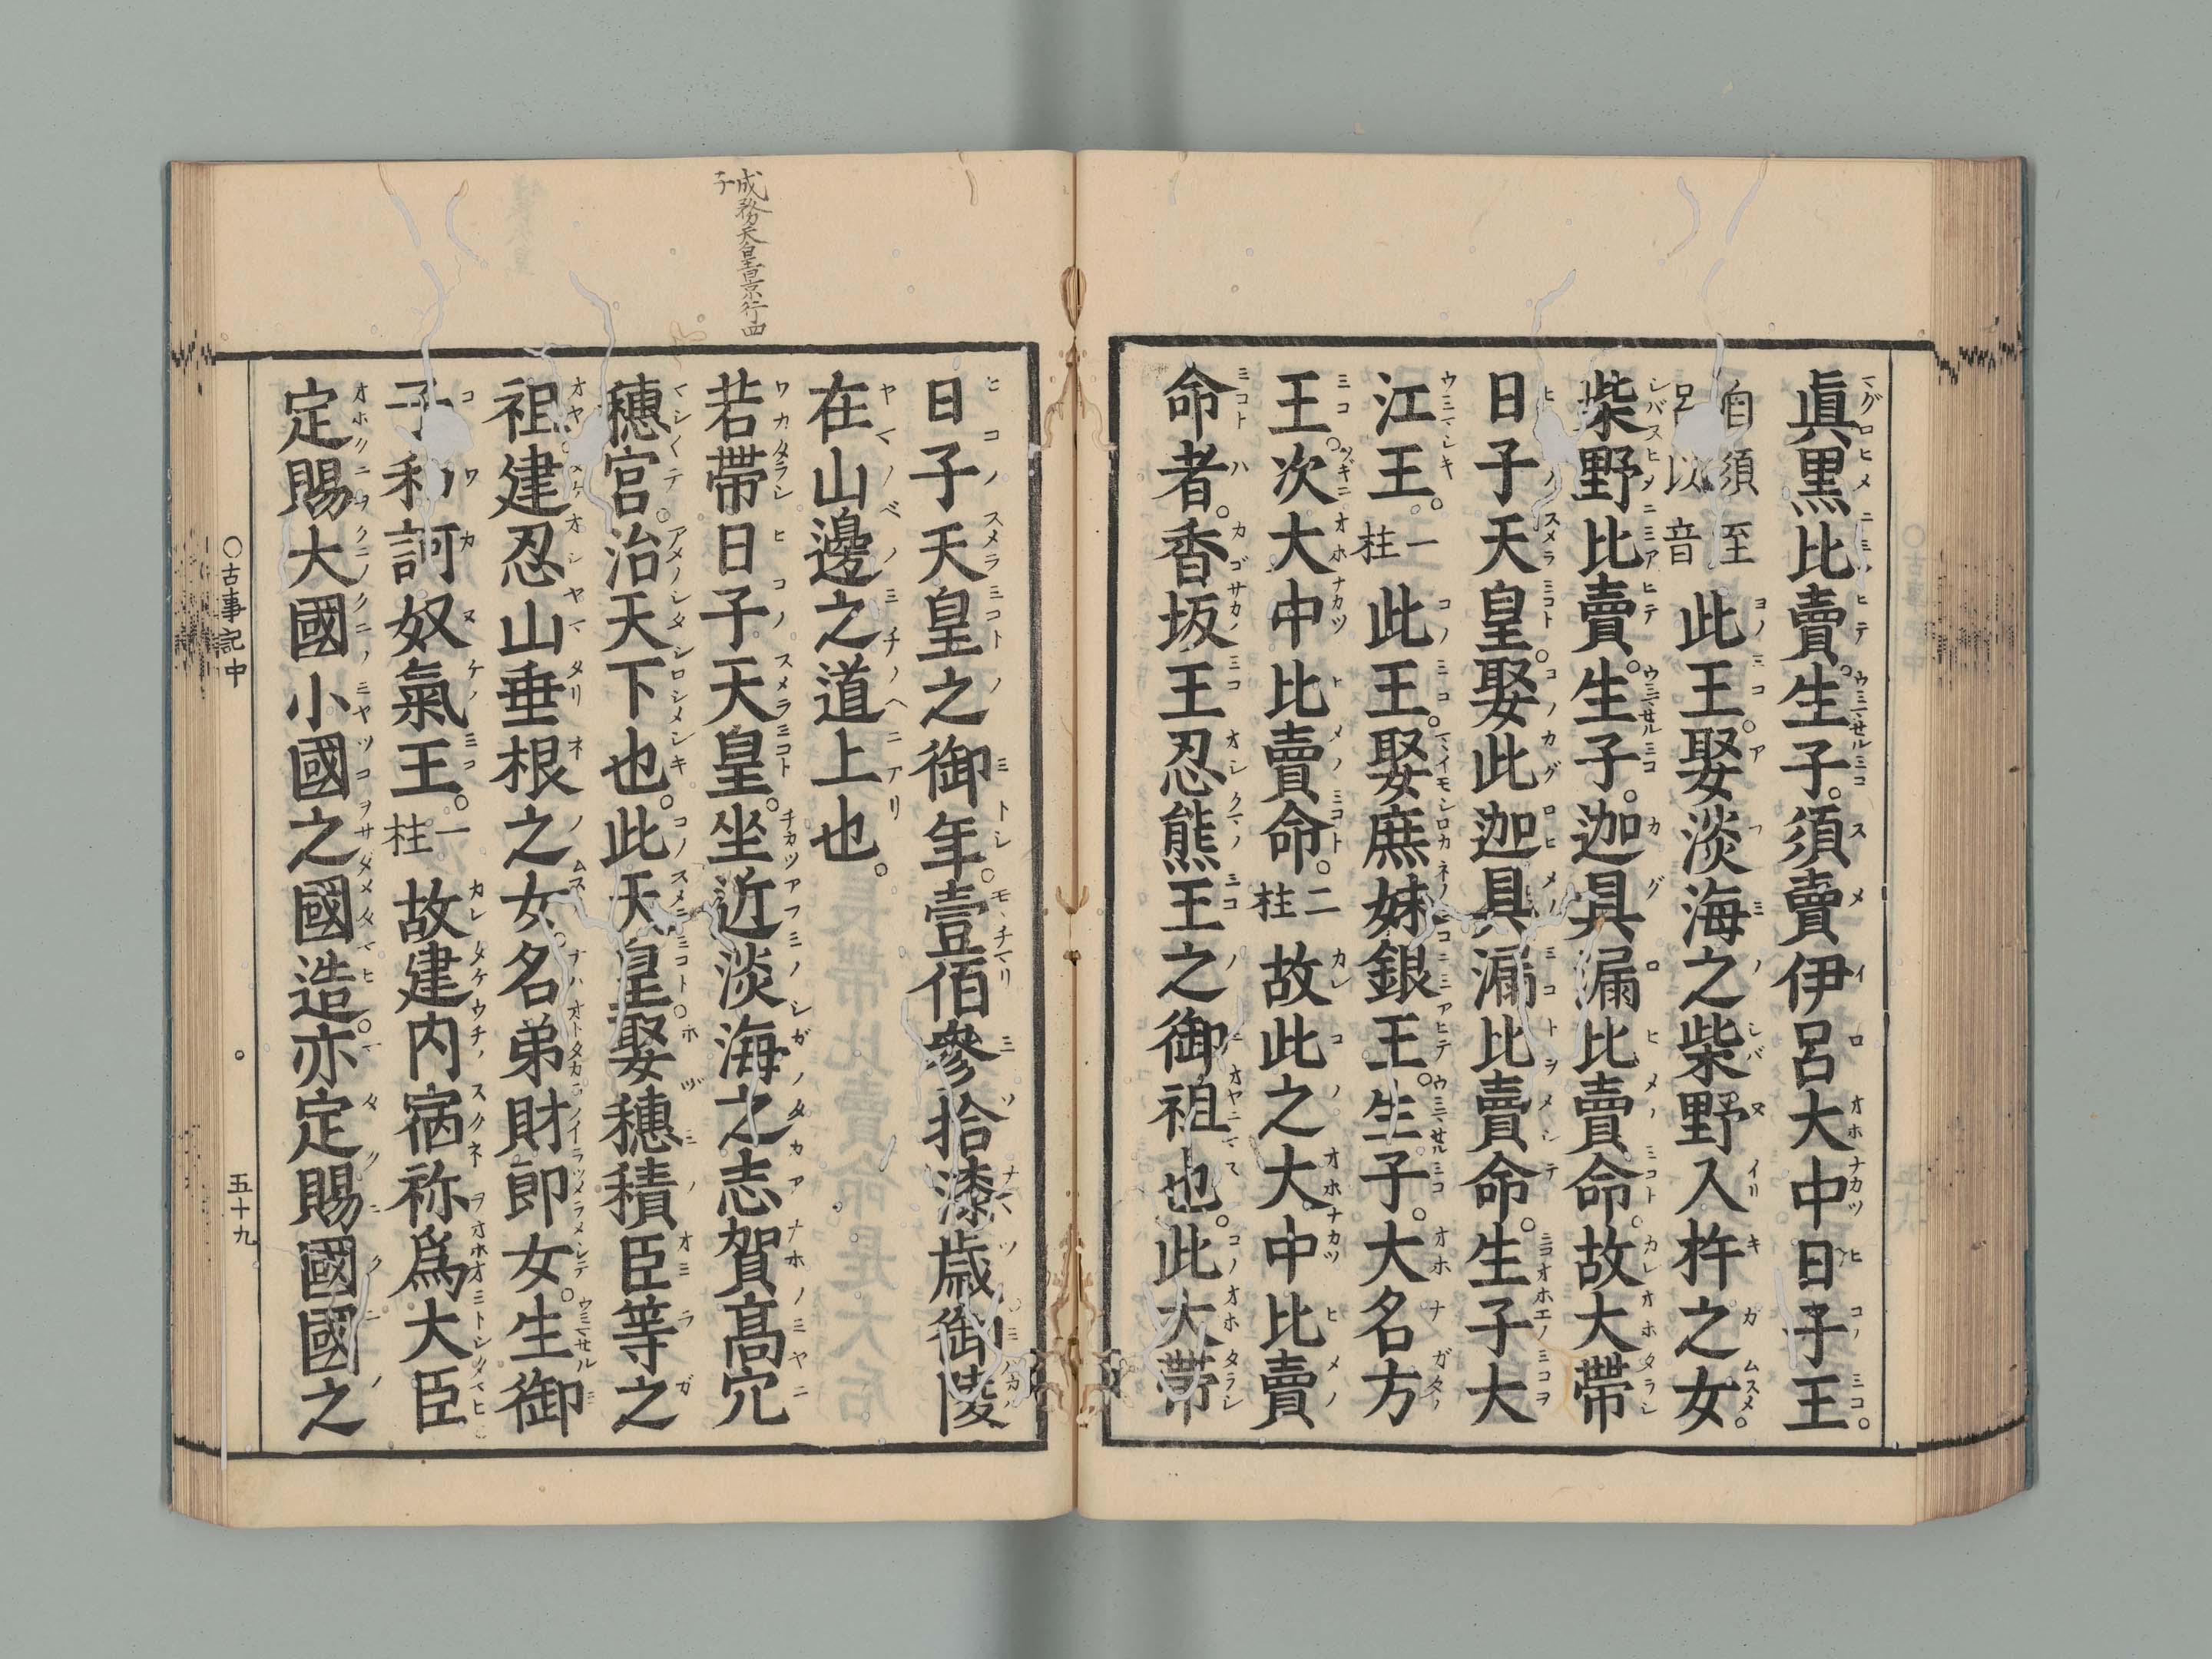 眞黒比賣。生子。須賣伊呂大中日子王。
自須至
呂以音
此王。娶淡海之柴野入杵之女。
柴野比賣。生子。迦具漏比賣命。故大帶
日子天皇。娶此迦具漏比賣命。生子大
江王。
一
柱
此王。娶庶妹銀王。生子。大名方
王。次大中比賣命。
二
柱
故此之大中比賣
命者。香坂王忍熊王之御祖也。此大帶
日子天皇之御年。壹佰參拾漆歳御陵
在山邊之道上也。
成務天皇景行四
子
若帶日子天皇。坐近淡海之志賀髙穴
穗宮。治天下也。此天皇。娶穗積臣等之
祖。建忍山垂根之女。名弟財郎女。生御
子和訶奴氣王。
一
柱
故建内宿祢爲大臣
定賜大國小國之國造。亦定賜國國之
○古事記中
五十九